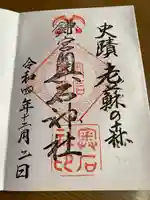 史蹟 老蘇の森
鎌宮奥石神社
令和四年十二月二日
奥石神社